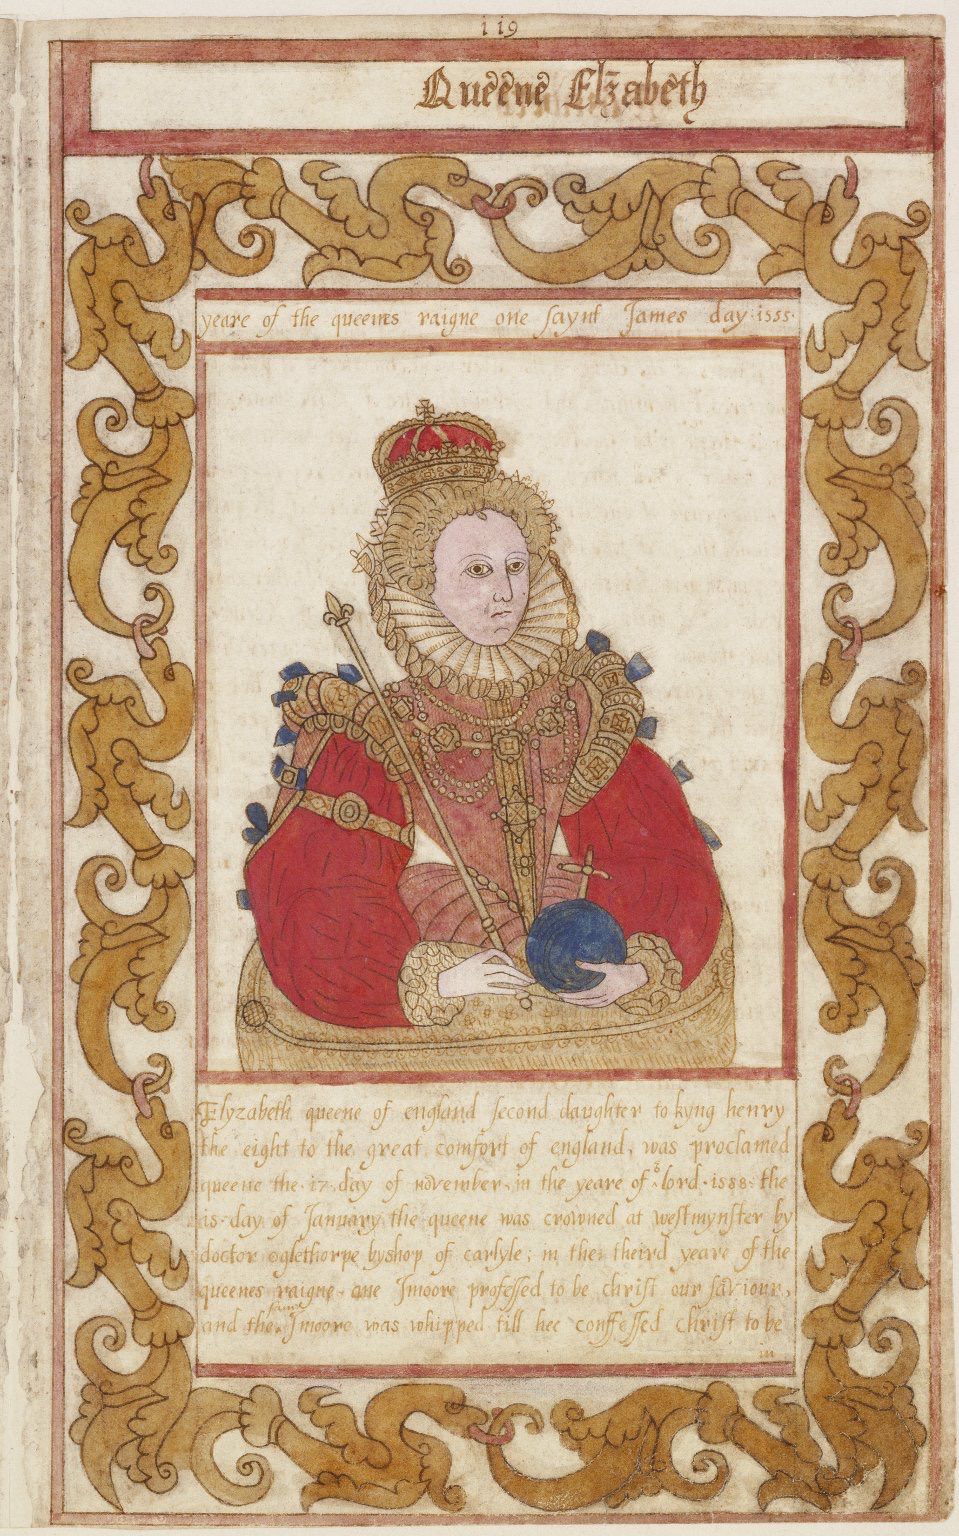 119
Queene Elzabeth
yeare of the queenes raigne one saynt James day·1555·
Elyzabeth queene of england second daughter to kyng henry
the eight to the great comfort of england, was proclamed
queene the·17·day of november, in the yeare of oʳ lord·1558·the
15·day of January the queene was crowned at westmynster by
doctor oglethorpe byshop of carlyle; in the theird yeare of the
queenes raigne one Jmoore professed to be christ our saviour,
and the same Jmoore was whipped till hee confessed christ to be
in